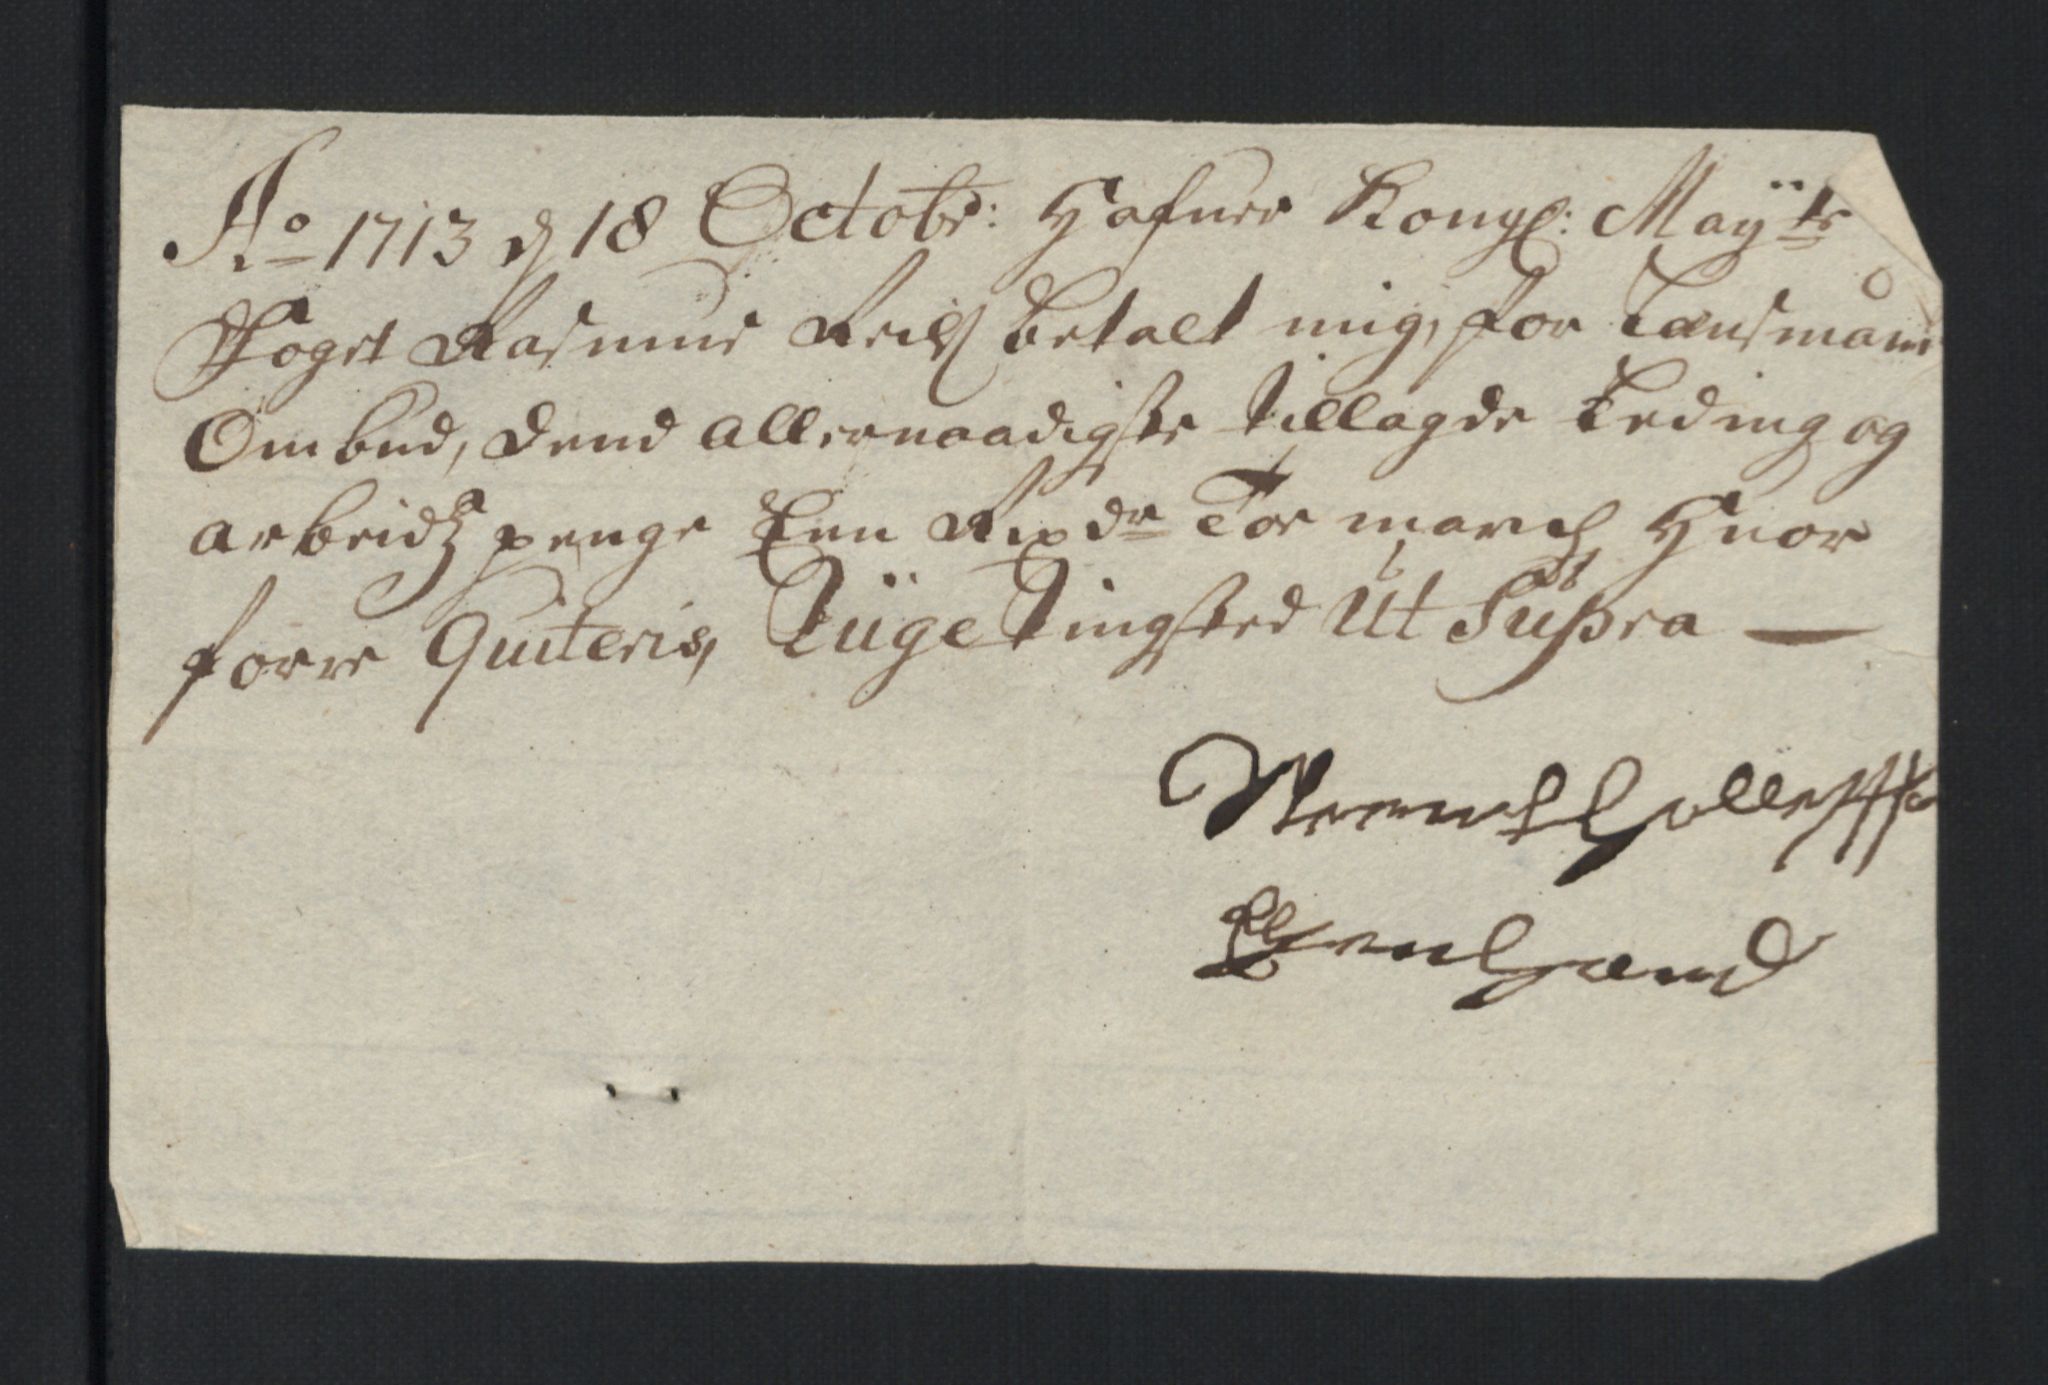 Ao 1713 d 18 Octobr: Hafuer Kongl: Mayts
Foget Rasmus betalt mig, for Lensmans
Ombud, dend allernaadigste tillagde Leding og
arbeidtz penge Een Rixdr Tor march, Huor
forre Quiteris, Tüge Tingsted Ut Supra
Egen haand